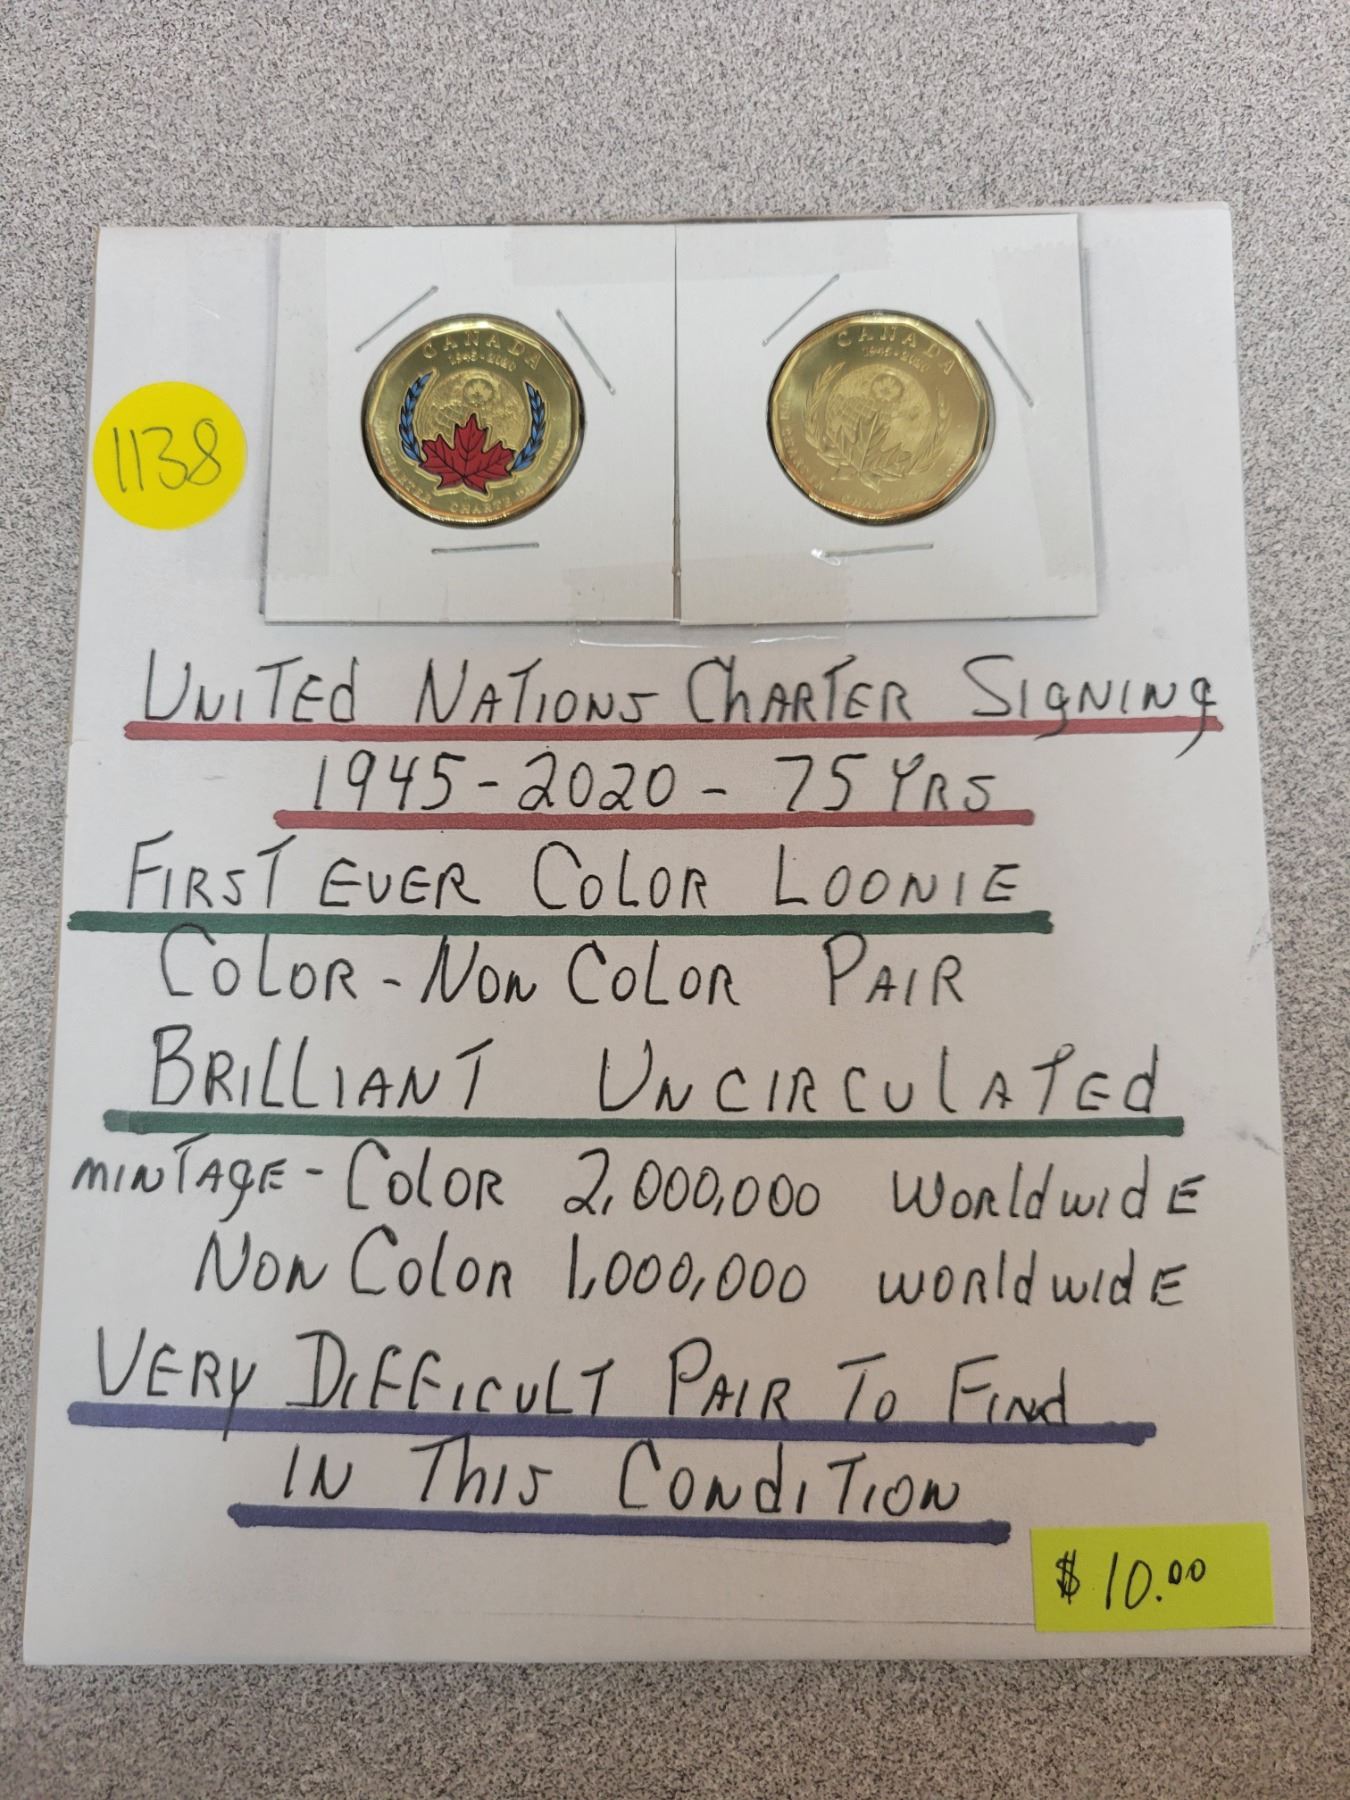 CANADA
1945-2020
CHARTER CHARTE DE L'ONU
CANADA
1945-2020
1138
UNITED NATIONS CHARTER SIGNING
1945-2020 - 75 YRS
FIRST EVER COLOR LOONIE
COLOR-NON COLOR PAIR
BRILLIANT UNCIRCULATED
MINTAGE - COLOR 2,000,000 WORLDWIDE
NON COLOR 1,000,000 WORLDWIDE
VERY DIFFICULT PAIR TO FIND
IN THIS CONDITION
$10.00